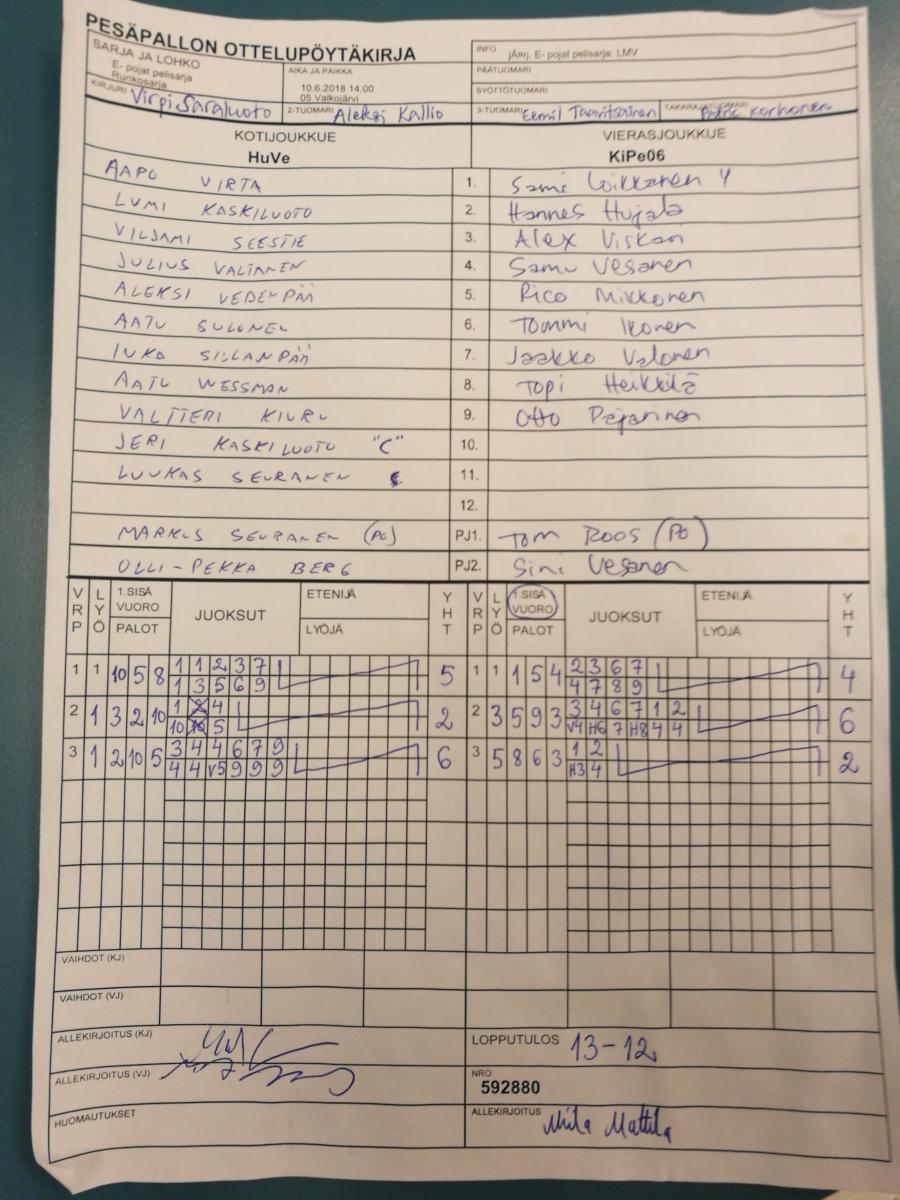 PESÄPALLON OTTELUPÖYTÄKIRJA
SARJA JA LOHKO
E- pojat pelisarja
Runkosarja
AIKA JA PAIKKA
10.6.2018 14:00
05 Valkojärvi
INFO jÄrj. E- pojat pelisarja: LMV
PÄÄTUOMARI
SYÖTTÖTUOMARI
KIRJURI Virpi Saraluoto
2-TUOMARI Aleksi Kallio
3-TUOMARI Eemil Taavitsainen
Korhonen
KOTIJOUKKUE VIERASJOUKKUE
HuVe KiPe06
AAPO VIRTA 1. Sami Loikkanen Y
LUMI KASKILUOTO 2. Hannes Hujala
VILJAMI SEESTIE 3. Alex
JULIUS VALTANEN 4. Samu Vesanen
ALEKSI VEDENPÄÄ 5. Rico Mikkonen
AATU SULONEN 6. Tommi Ikonen
IUKA SILLANPÄÄ 7. Jaakko Valonen
AATU WESSMAN 8. Topi Heikkilä
VALTTERI KIURU 9. Otto Pajarinen
JERI KASKILUOTO "C" 10.
LUUKAS SEURANEN 11.
12.
MARKUS SEURANEN (PO) PJ1. Tom Roos (PO)
OLLI-PEKKA BERG PJ2. Sini Vesanen
VRP LYÖ 1.SISÄ VUORO PALOT JUOKSUT ETENIJÄ LYÖJÄ YHT VRP LYÖ 1.SISÄ VUORO PALOT JUOKSUT ETENIJÄ LYÖJÄ YHT
1 1 10 5 8 1 1 2 3 7 5 1 1 1 5 4 2 3 6 7 4
1 3 5 6 9 4 7 8 9
2 1 3 2 10 1 4 2 2 3 5 9 3 3 4 6 7 1 2 6
10 10 5 V4 H6 7 H8 4 4
3 1 2 10 5 3 4 4 6 7 9 6 3 5 8 6 3 1 2 2
4 4 V5 9 9 9 H3 4
VAIHDOT (KJ)
VAIHDOT (VJ)
ALLEKIRJOITUS (KJ) LOPPUTULOS 13-12
ALLEKIRJOITUS (VJ) NRO
592880
HUOMAUTUKSET ALLEKIRJOITUS Miila Mattila